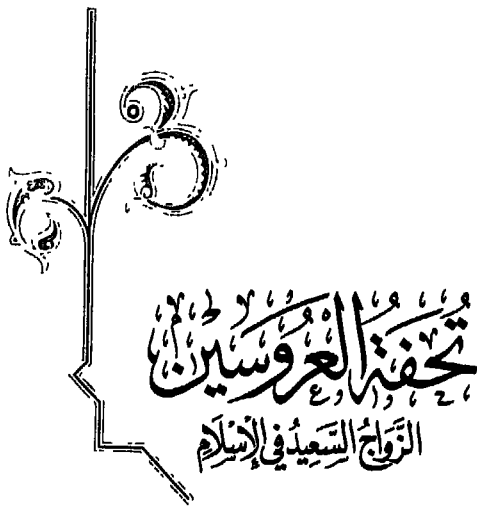 تُحْفَةُ الْعَرُوسَيْنِ
الزَّوَاجُ السَّعِيدُ فِي الْإِسْلَامِ